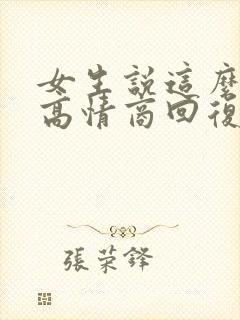 女生說這麼
高情商回復
張荣鐸